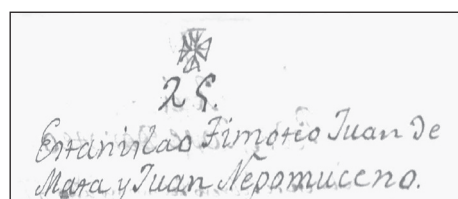 25.
Estanislao Timoteo Juan de
Mata y Juan Nepomuceno.